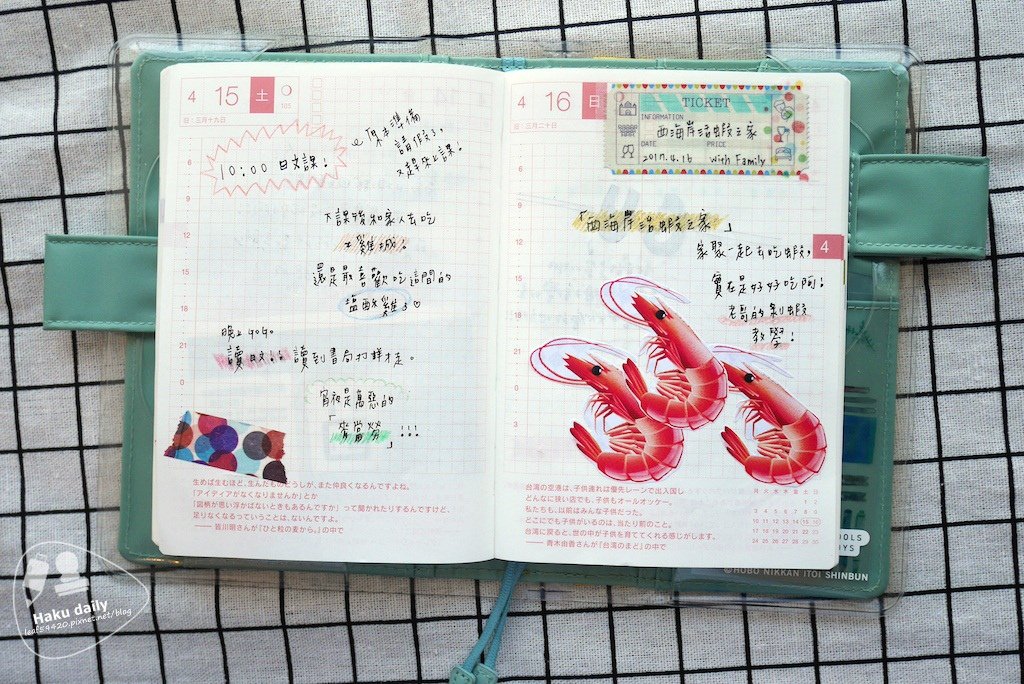 4 15 土
旧:三月十九日
105
10:00 日文課!
「原本準備
請假」,
又趕快上課!
下課後和家人去吃
土雞城。
還是最喜歡吃這間的
塩酥雞!♡
晚上 gogo
讀日文!。讀到書局打烊才走。
宵夜是萬惡的
「麥當勞」!!!
生めば生むほど、生んだものどうしが、また仲良くなるんですよね。
「アイディアがなくなりませんか」とか
「図柄が思い浮かばないときもあるんですか」って聞かれたりするんですけど、
足りなくなるっていうことは、ないんですよ。
—— 皆川明さんが『ひと粒の麦から。』の中で
4 16 日
旧:三月二十日
TICKET
INFORMATION
西海岸活蝦之家
DATE PRICE
2017.4.16 with Family
「西海岸活蝦之家」
家聚一起去吃蝦,
實在是好好吃阿!
老哥的剝蝦
教學!
4
台湾の空港は、子供連れは優先レーンで出入国し
どんなに狭い店でも、子供もオールオッケー。
私たちも、以前はみんな子供だった。
どこにでも子供がいるのは、当たり前のこと。
台湾に戻ると、世の中が子供を育ててくれる感じがします。
—— 青木由香さんが『台湾のまど』の中で
月 火 水 木 金 土 日
1 2
3 4 5 6 7 8 9
10 11 12 13 14 15 16
17 18 19 20 21 22 23
24 25 26 27 28 29 30
©HOBO NIKKAN ITOI SHINBUN
Haku daily
leaf69420.pixnet.net/blog